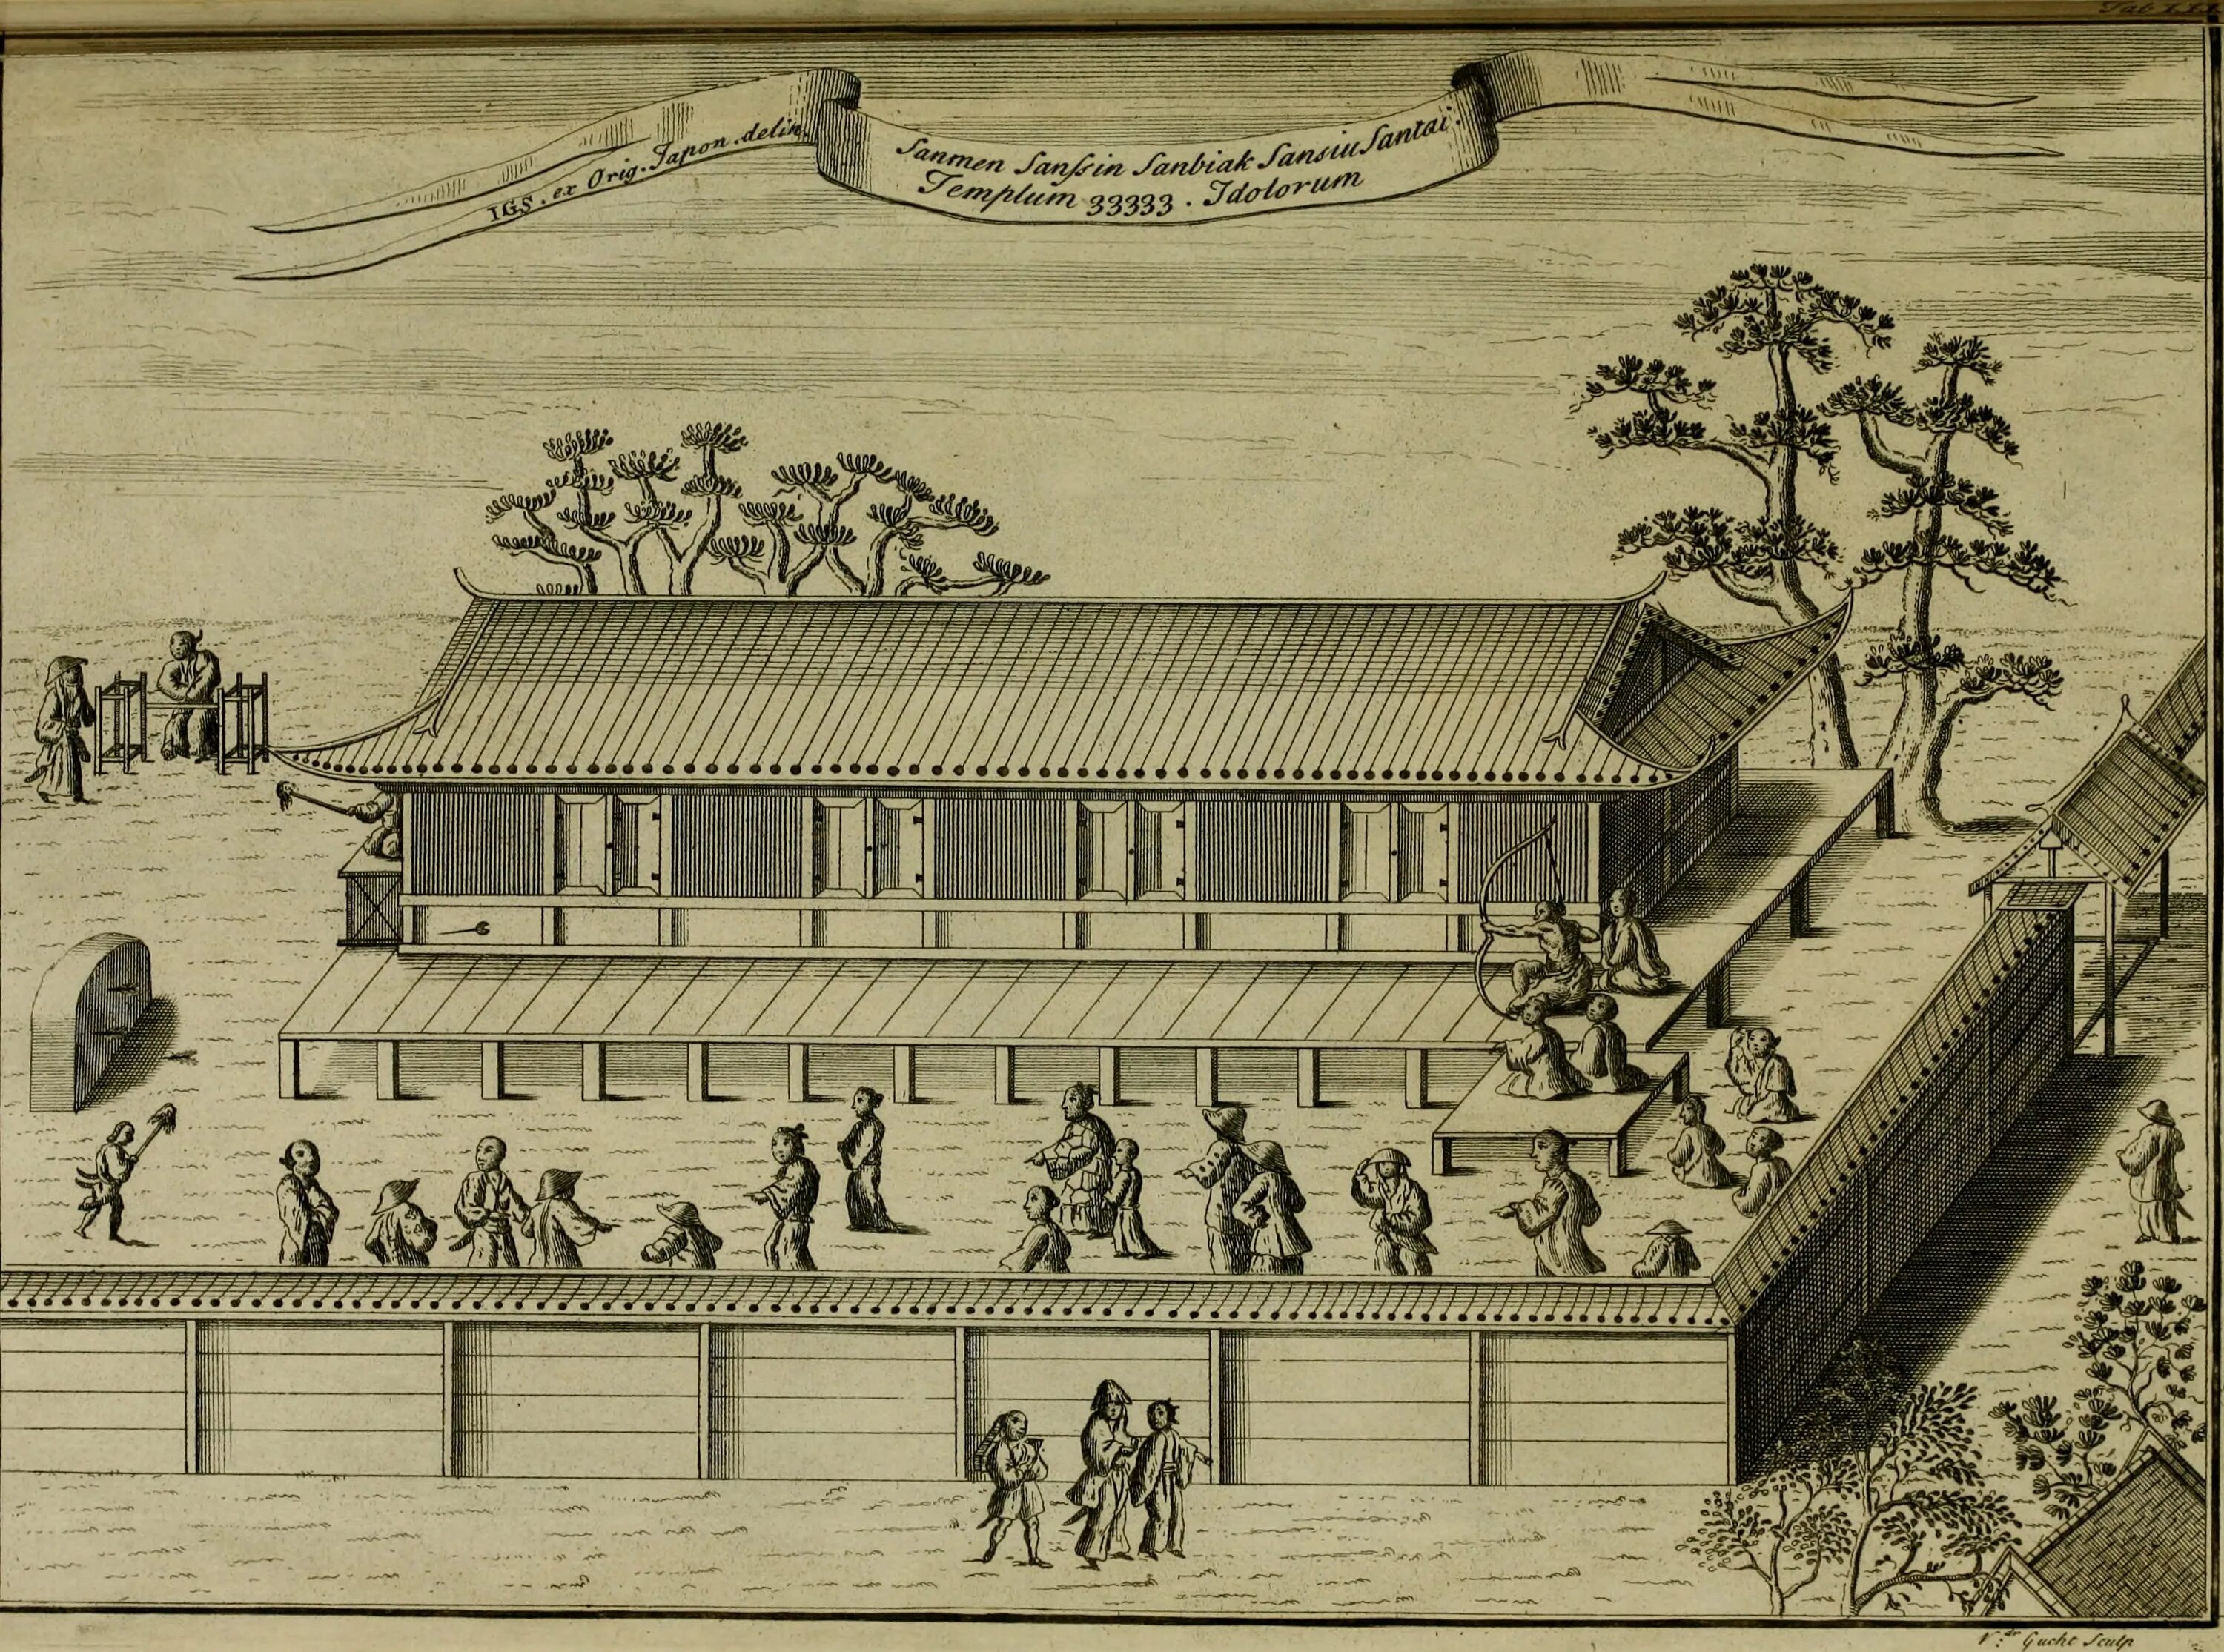 Tab
I.G.S. ex Orig. Japon. delin.
Sanmen Sanſsin Sanbiak Sansiu Santai.
Templum 33333. Idolorum
V.dr Gucht Sculp